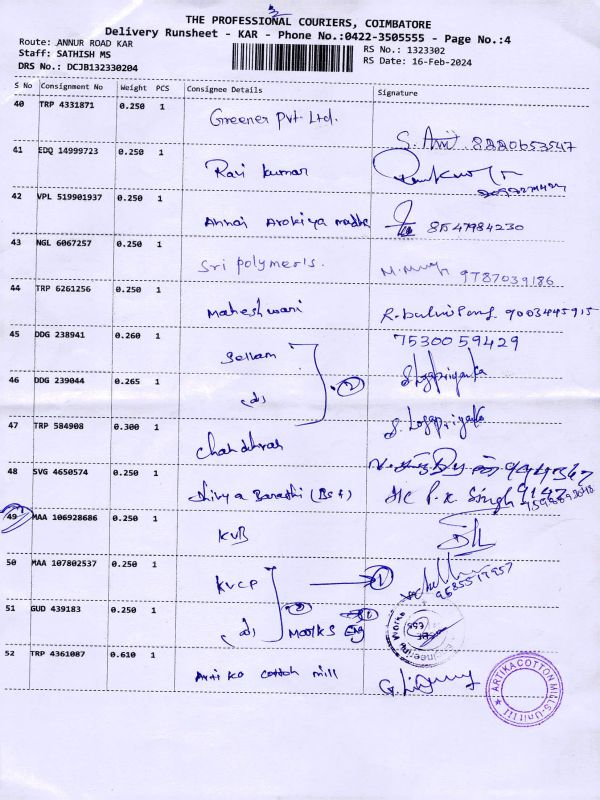 THE PROFESSIONAL COURIERS, COIMBATORE
Delivery Runsheet - KAR - Phone No.:0422-3505555 - Page No.:4
Route: ANNUR ROAD KAR
RS No.: 1323302
Staff: SATHISH MS
RS Date: 16-Feb-2024
DRS No.: DCJB132330204
S No Consignment No Weight PCS Consignee Details Signature
40 TRP 4331871 0.250 1
Greener Pvt. Ltd.
8220653547
41 EDQ 14999723 0.250 1
Ravi Kumar
42 VPL 519901937 0.250 1
Annai Arokiya madha 8547984230
43 NGL 6067257 0.250 1
Sri polymers. 9787039186
44 TRP 6261256 0.250 1
Maheshwani 9003445915
45 DDG 238941 0.260 1
7530059429
Selvam
46 DDG 239044 0.265 1
(d) 2
S. Logapriyanka
47 TRP 584908 0.300 1
S. Logapriyanka
48 SVG 4650574 0.250 1
Divya Barathi
P.K Singh
49 MAA 106928686 0.250 1
KVB
50 MAA 107802537 0.250 1
KVCP 1
9685517957
51 GUD 439183 0.250 1
(d) Works Eng
52 TRP 4361087 0.610 1
cotton mill
ARTIKA COTTON MILLS - Unit III